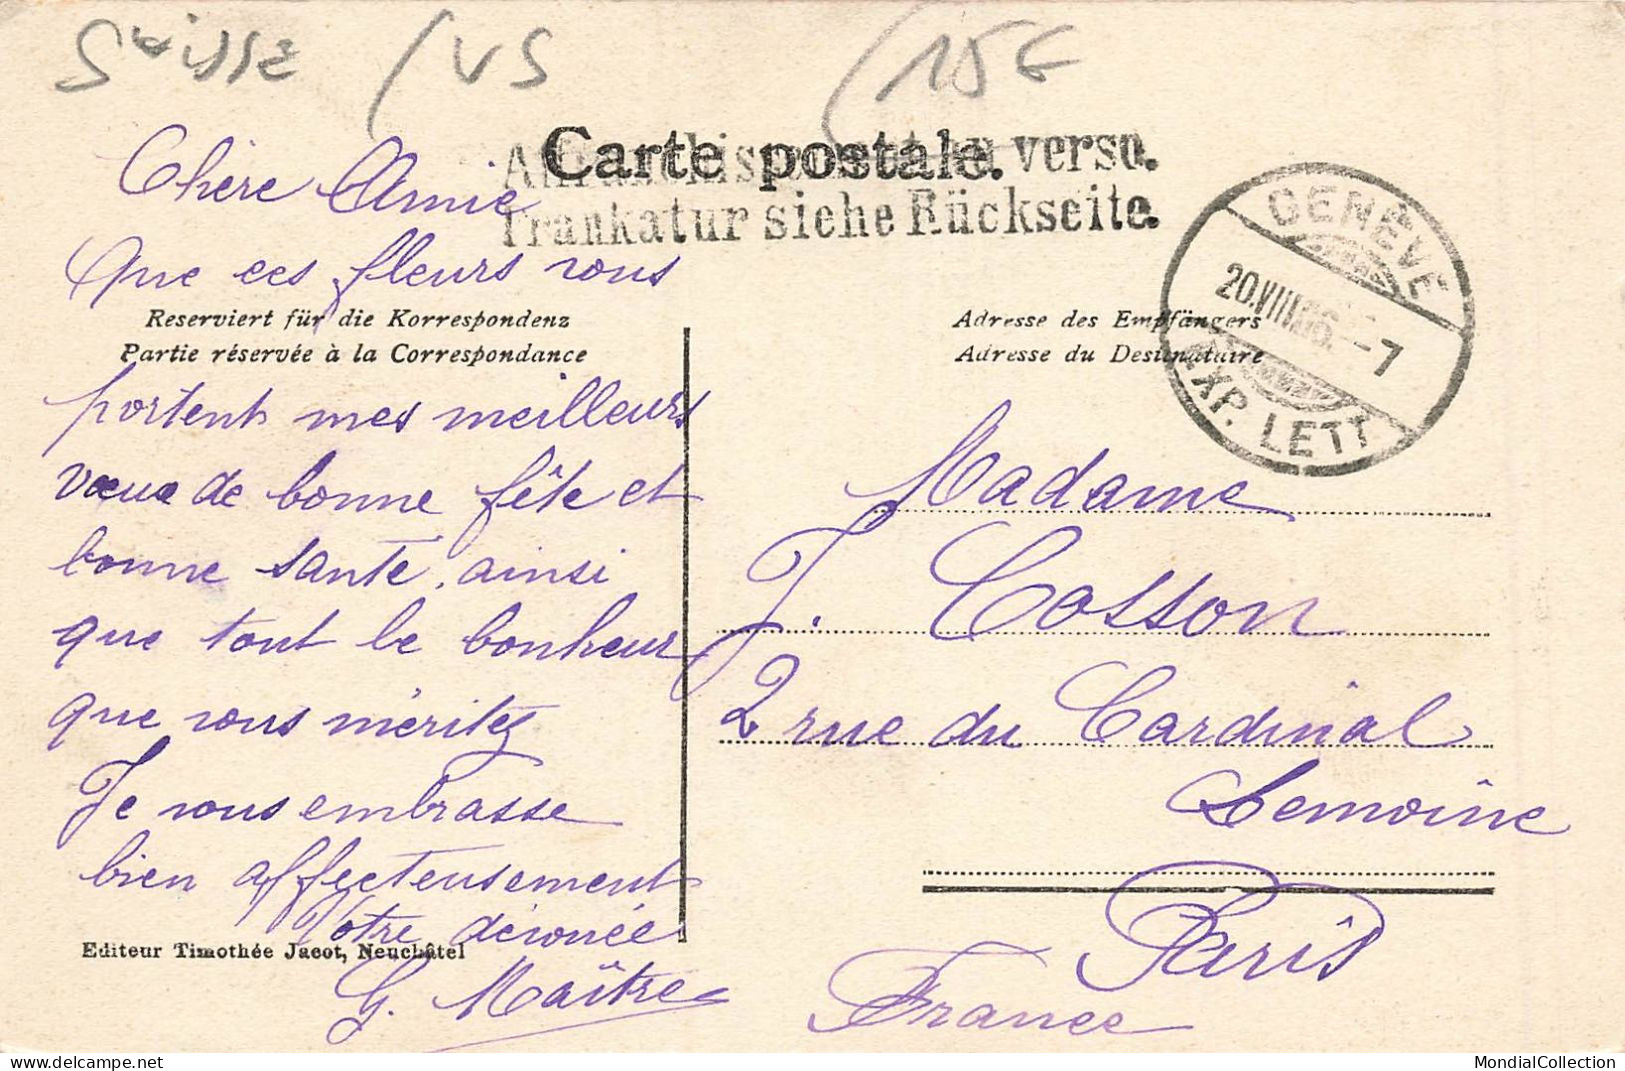 Suisse (VS (15€
Carte postale.
Affranchissement au verso.
Frankatur siehe Rückseite.
Chère Amie
Que ces fleurs vous
Reserviert für die Korrespondenz
Partie réservée à la Correspondance
portent mes meilleurs
vœux de bonne fête et
bonne santé, ainsi
que tout le bonheur
que vous méritez
Je vous embrasse
bien affecteusement
Votre dévouée
G. Maître
Editeur Timothée Jacot, Neuchâtel
Adresse des Empfängers
Adresse du Destinataire
GENÈVE
20.VIII. –7
EXP. LETT
Madame
J. Cosson
2 rue du Cardinal
Lemoine
Paris
France
MondialCollection